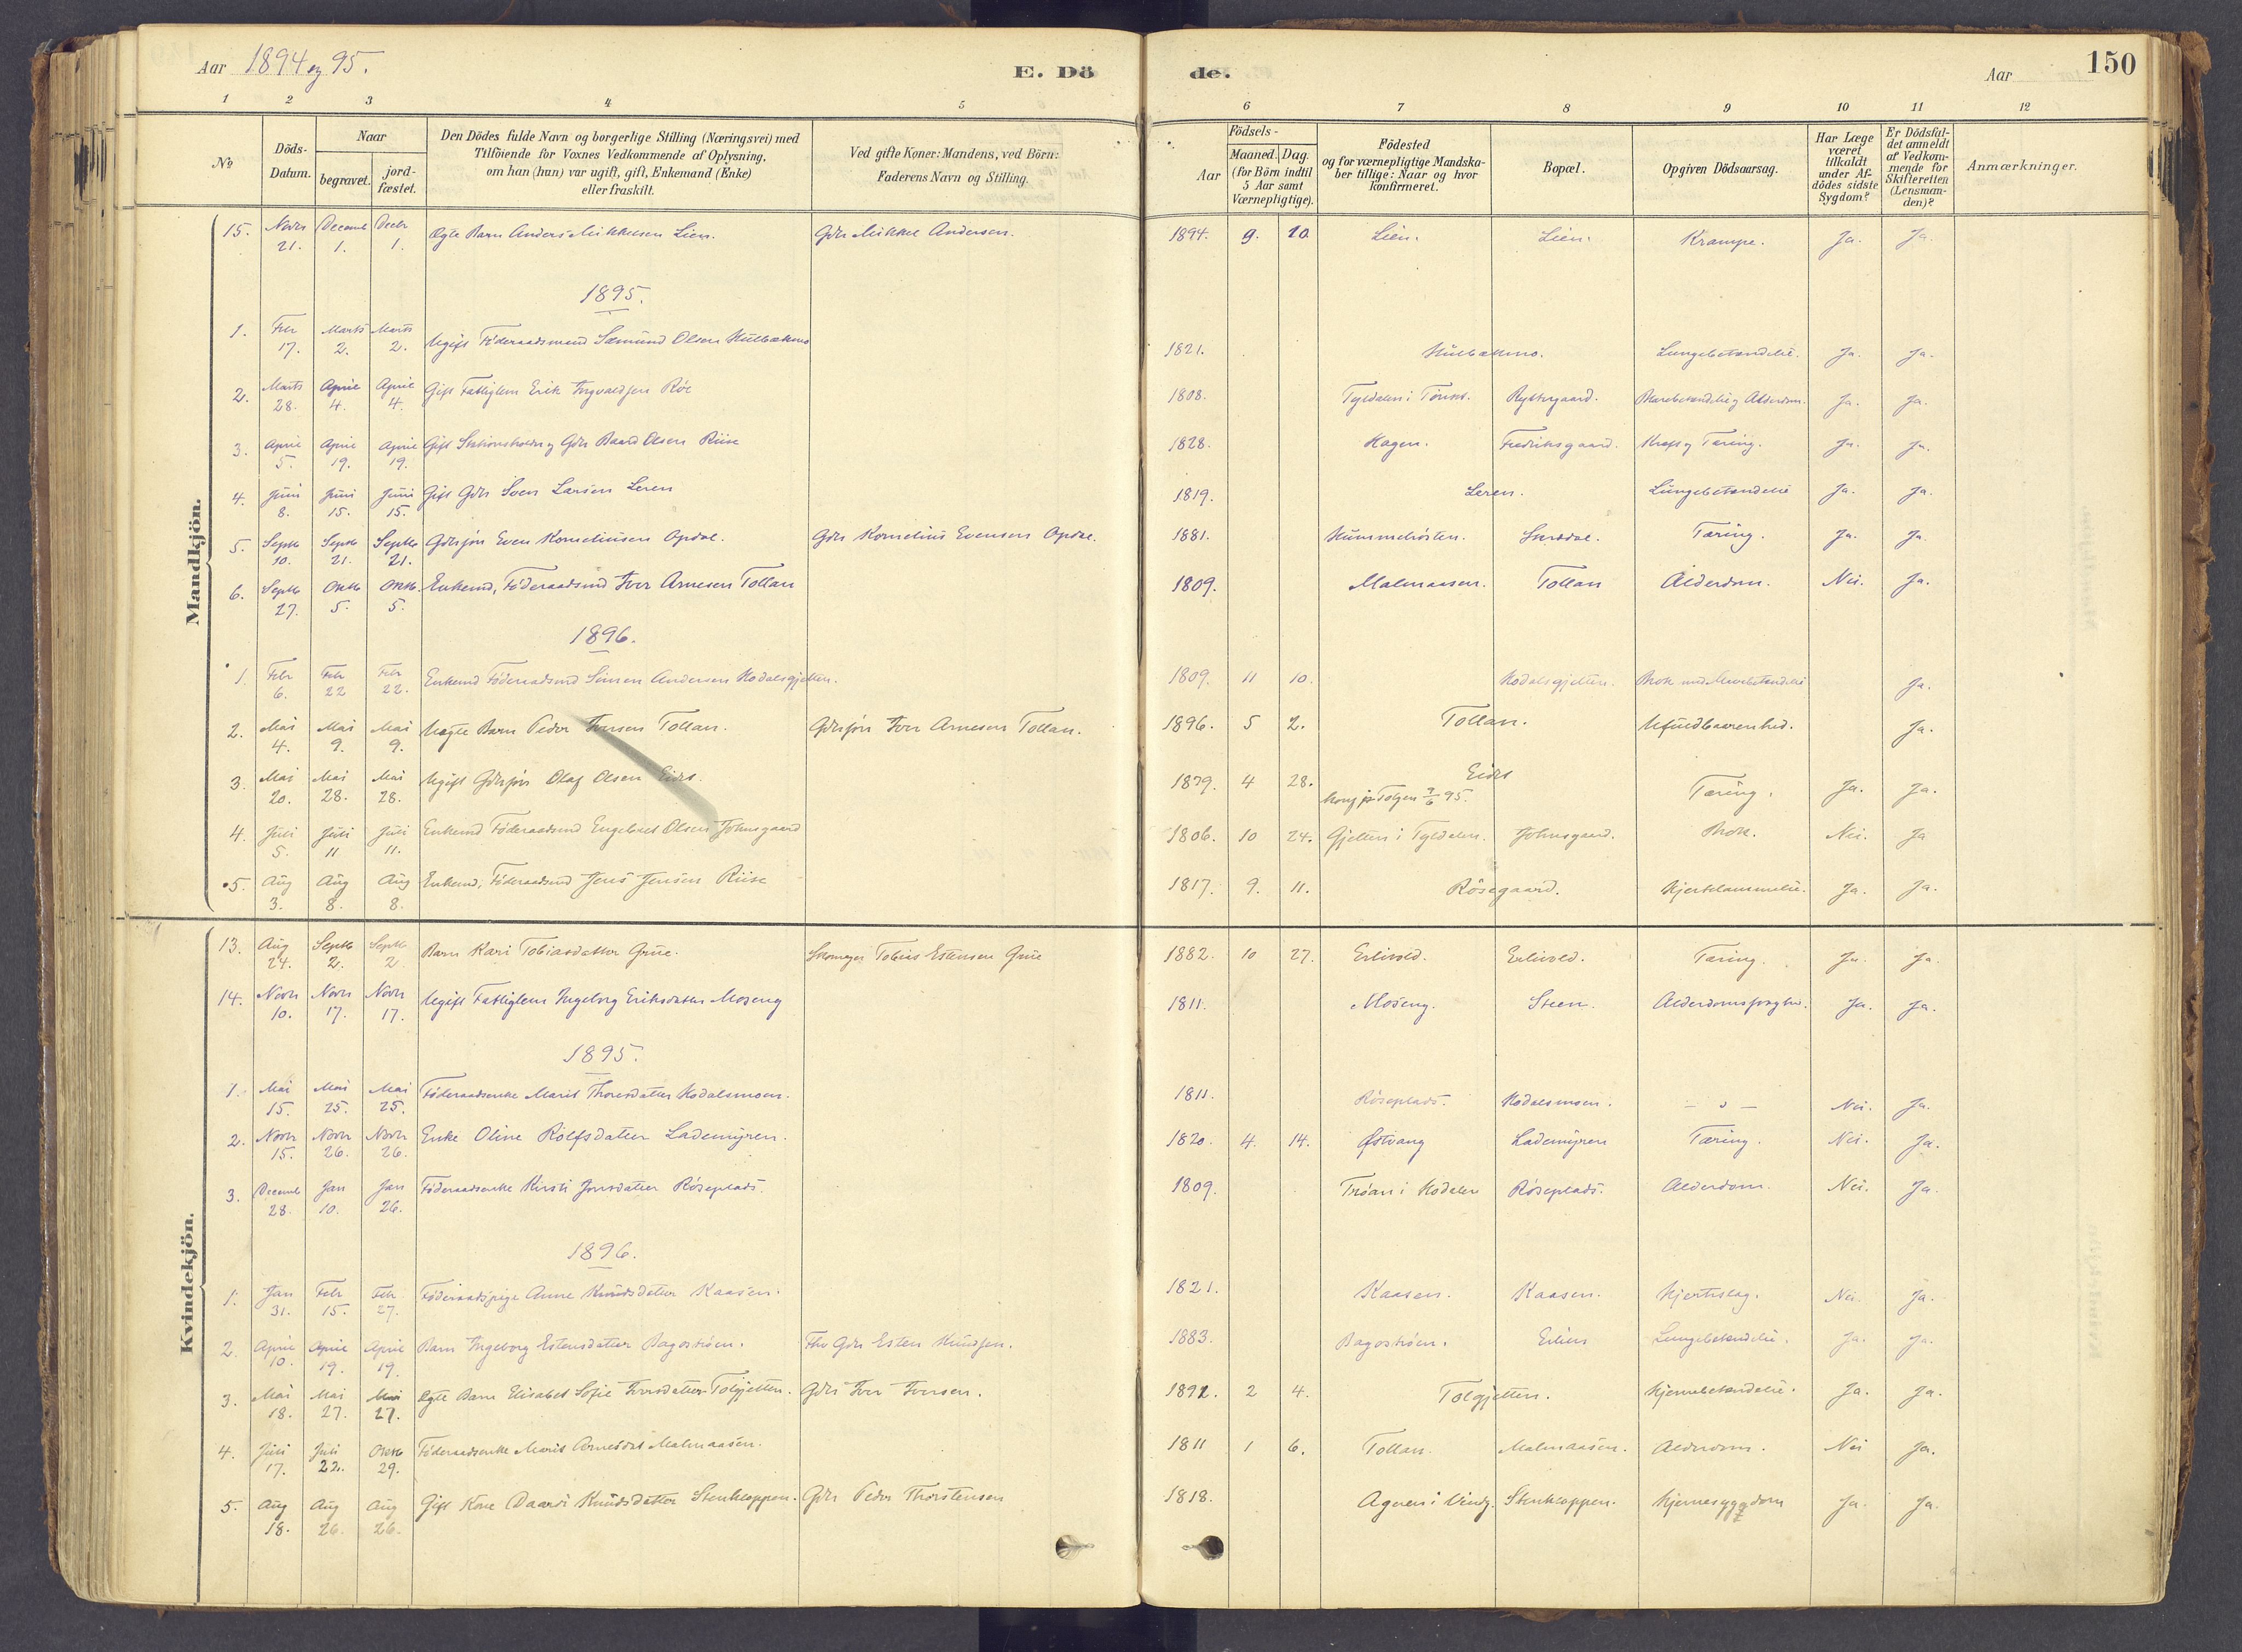 Aar 1894 og 95.
E. Dö
de.
Aar
150
1 2 3 4 5 6 7 8 9 10 11 12
No
Döds-Datum.
Naar
begravet.
jord-fæstet.
Den Dödes fulde Navn og borgerlige Stilling (Næringsvei) med
Tilföiende for Voxnes Vedkommende af Oplysning,
om han (hun) var ugift, gift, Enkemand (Enke)
eller fraskilt.
Ved gifte Koner: Mandens, ved Börn:
Faderens Navn og Stilling.
Födsels-
Aar
Maaned. Dag.
(for Börn indtil
5 Aar samt
Værnepligtige).
Födested
og for værnepligtige Mandska-
ber tillige: Naar og hvor
konfirmeret.
Bopæl.
Opgiven Dödsaarsag.
Har Læge
været
tilkaldt
under Af-
dödes sidste
Sygdom?
Er Dödsfal-
det anmeldt
af Vedkom-
mende for
Skifteretten
(Lensman-
den)?
Anmærkninger.
Mandkjön.
15. Novbr 21. Decemb 1. Decbr 1. Ægte Barn Anders Mikkelsen Lien. Gbr Mikkel Andersen. 1894. 9. 10. Lien. Lien. Krampe. Ja. Ja.
1895.
1. Febr 17. Marts 2. Marts 2. Ugift Föderaadsmand 1821. Lungebetændelse. Ja. Ja.
2. Marts 28. April 4. April 4. Gift Fattiglem Erik Ingvaldsen Röe 1808. Tyldalen i Alderdom. Ja. Ja.
3. April 5. April 19. April 19. Gift Stationsholder og Gbr Baard Olsen Riise 1828. Hagen. Fredriksgaard. Kræft og Tæring. Ja. Ja.
4. Juni 8. Juni 15. Juni 15. Gift Gbr Sven Larsen Leren 1819. Leren. Lungebetændelse Ja. Ja.
5. Septb 10. Septb 21. Septbr 21. Gbrsjön Even Korneliusen Opdal. Gbr Kornelius Evensen Opdal. 1881. Tæring. Ja. Ja.
6. Septb 27. Oktb 5. Oktb. 5. Enkemd, Föderaadsmd Iver Arnesen Tollan 1809. Malmaasen. Tollan Alderdom. Nei. Ja.
1896.
1. Febr 6. Febr 22 Febr 22. Enkemd Föderaadsmd Simen Andersen Hodalsgjelten. 1809. 11 10. Hodalsgjelten. Ja.
2. Mai 4. Mai 9. Mai 9. Uægte Barn Peder Iversen Tollan. Gbrsjön Iver Arnesen Tollan. 1896. 5 2. Tollan. Ufuldbaarenhed. Ja.
3. Mai 20. Mai 28. Mai 28. Ugift Gbrsjön Olaf Olsen Eidet. 1879. 4 28. Eidet Tolgen 7/6 95. Tæring. Ja. Ja.
4. Juli 5. Juli 11 Juli 11. Enkemd Föderaadsmd Engebret Olsen Johnsgaard 1806. 10 24. Gjelten i Tyldalen. Johnsgaard. Brok. Nei. Ja
5. Aug 3. Aug 8. Aug 8. Enkemd, Föderaadsmd Jens Jensen Riise 1817. 9. 11. Rösegaard. Hjertelammelse. Ja. Ja.
Kvindekjön.
13. Aug 24. Septb 2. Septb 2 Barn Kari Tobiasdatter Grue. Skomager Tobias Estensen Grue 1882. 10 27. Erlivold. Erlivold. Tæring. Ja. Ja.
14. Novbr 10. Novbr 17. Novbr 17. Ugift Fattiglem Ingeborg Eriksdatter Moseng 1811. Moseng. Steen. Ja. Ja.
1895.
1. Mai 15. Mai 25. Mai 25. Föderaadsenke Marit Thoresdatter Hodalsmoen. 1811. Röseplads. Hodalsmoen. — " — Nei. Ja.
2. Novbr 15. Novbr 26. Novbr 26. Enke Oline Rolfsdatter Lademyren. 1820. 4. 14. Østvang Lademyren Tæring. Nei. Ja.
3. Decemb 28. Jan 10. Jan 26. Föderaadsenke Kirsti Jonsdatter Röseplads 1809. Tröan i Hodalen Röseplads. Alderdom. Nei. Ja.
1896.
1. Jan 31. Febr 15. Febr 27. Föderaadspige Anne Knudsdatter Kaasen. 1821. Kaasen. Kaasen. Hjerteslag. Nei. Ja.
2. April 10. April 19. April 19. Barn Ingeborg Estensdatter Bagströen. Gbr Esten Knudsen. 1883. Bagströen. Lungebetændelse. Ja. Ja.
3. Mai 18. Mai 27. Mai 27. Ægte Barn Elisabet Sofie Iversdatter Tolgjelten. Gbr Iver Iversen. 1892. 2 4. Tolgjelten. Hjernebetændelse. Ja. Ja.
4. Juli 17. Juli 22. Oktb 29. Föderaadsenke Marit Arnesdat Malmaasen. 1811 1 6. Tollan. Malmaasen. Alderdom. Nei Ja.
5. Aug 18. Aug 26. Aug 26. Gift Kone Baardi Knudsdatter Stenkloppen. Gbr Peder Thorstensen 1818. Stenkloppen. Hjernesygdom Ja. Ja.